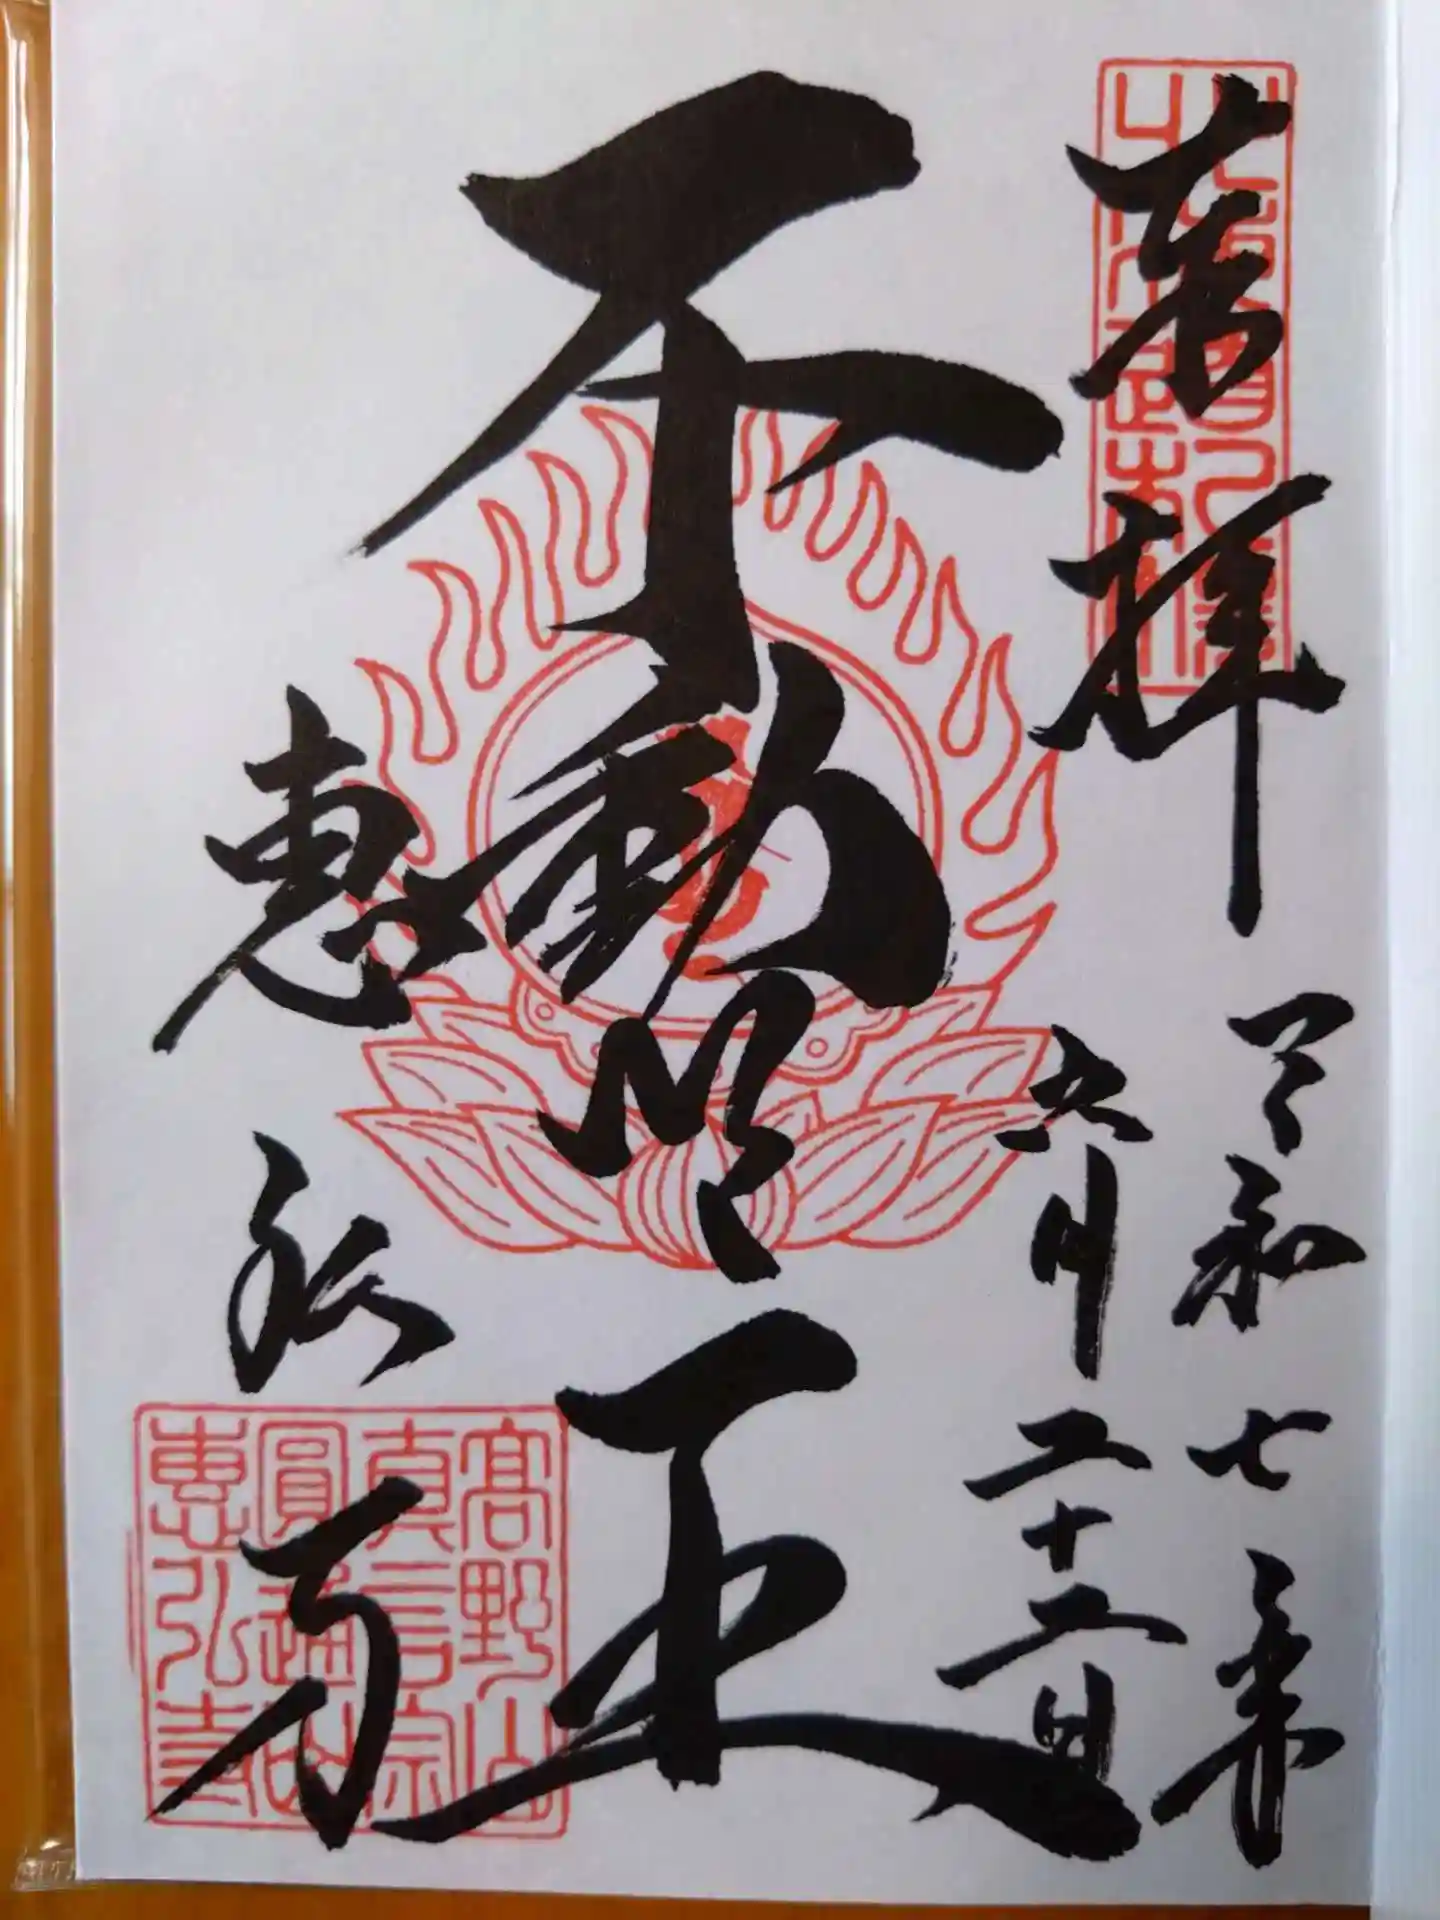 奉拝
令和七年
六月二十二日
不動明王
惠弘寺
高野山
真言宗
圓通山
惠弘寺